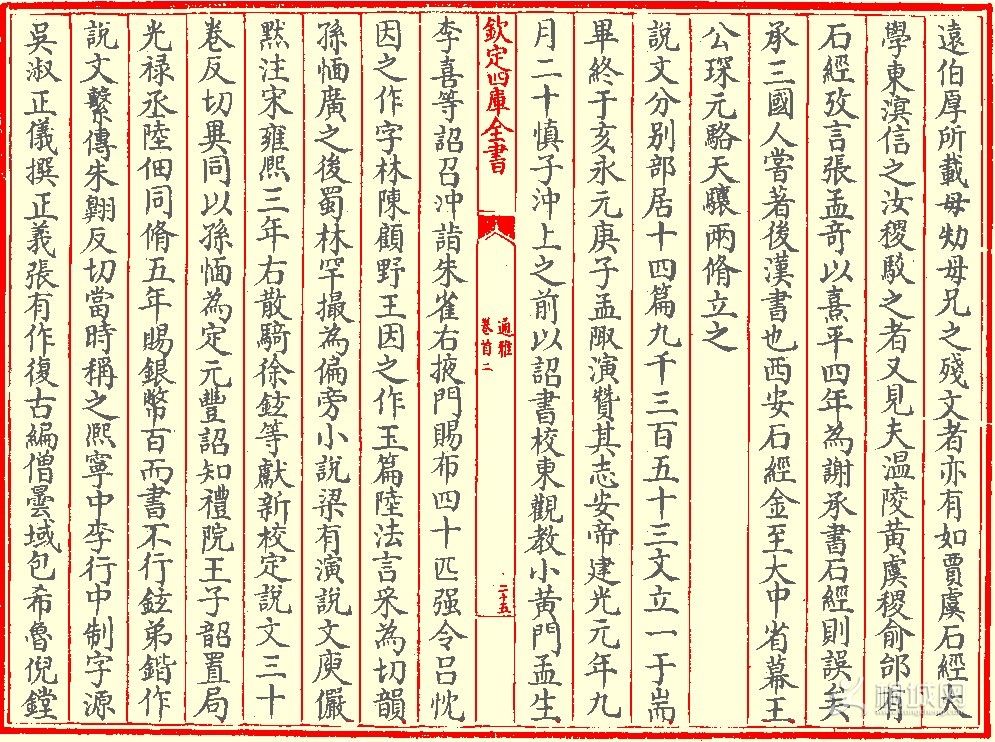 遠伯厚所載母勑母兄之殘文者亦有如賈虞石經大
學東滨信之汝稷駁之者又見夫温陵黄虞稷俞邰有
石經攷言張孟奇以熹平四年為謝承書石經則誤矣
承三國人當著後漢書也西安石經金至大中省幕王
公琛元駱天驤兩脩立之
説文分别部居十四篇九千三百五十三文立一于耑
畢終于亥永元庚子孟陬演贊其志安帝建光元年九
月二十慎子沖上之前以詔書校東觀教小黄門孟生
欽定四庫全書
通雅
卷首二
二十五
李喜等詔召沖詣朱雀右掖門賜布四十匹强令吕忱
因之作字林陳顧野王因之作玉篇陸法言采為切韻
孫愐廣之後蜀林罕撮為偏旁小説梁有演説文庾儼
黙注宋雍熙三年右散騎徐鉉等獻新校定説文三十
卷反切異同以孫愐為定元豐詔知禮院王子韶置局
光禄丞陸佃同脩五年賜銀幣百而書不行鉉弟鍇作
説文繫傳朱翺反切當時稱之熙寧中李行中制字源
吳淑正儀撰正義張有作復古編僧曇域包希魯倪鏜